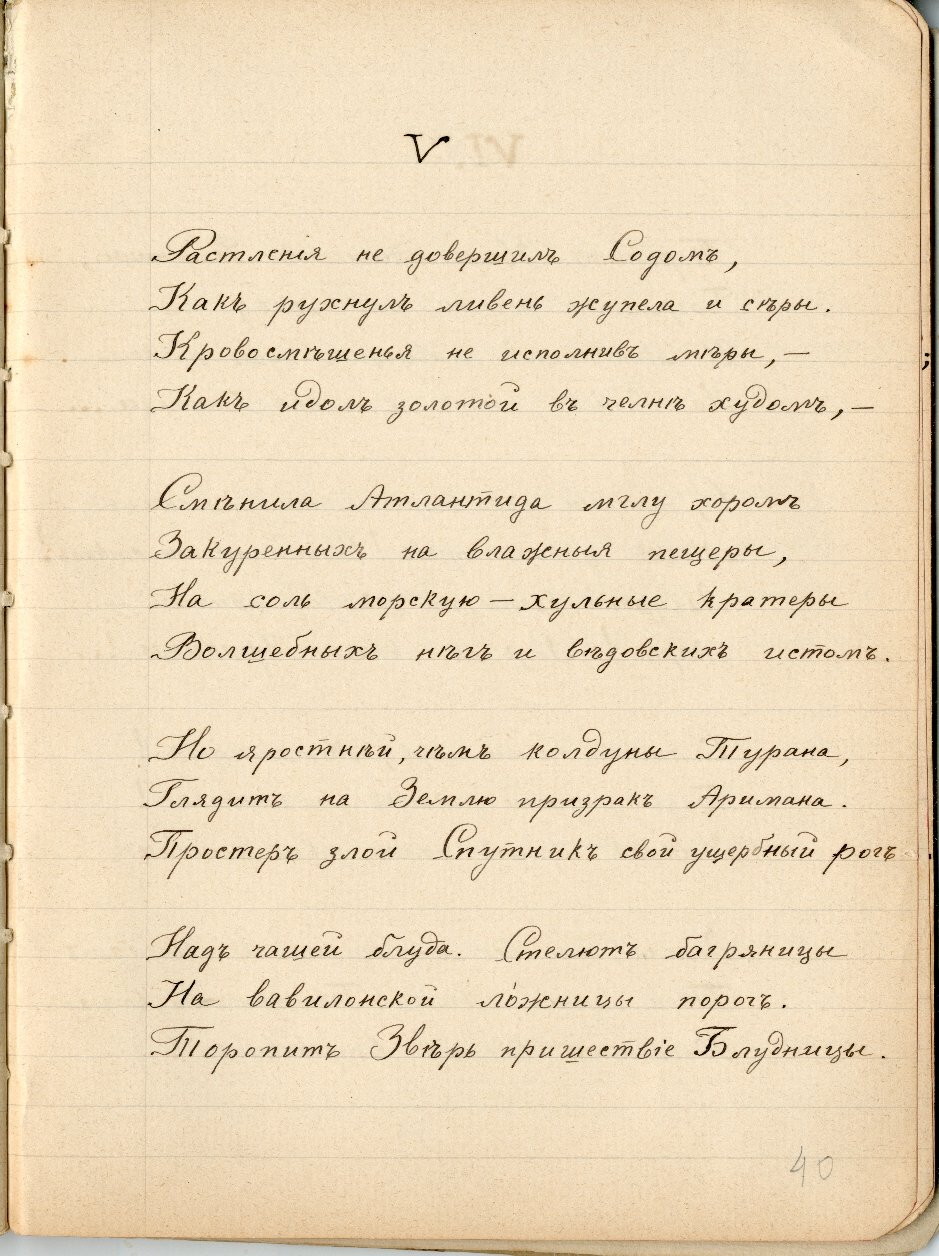 V
Растленія не довершилъ Содомъ,
Какъ рухнулъ ливень жупела и сѣры.
Кровосмѣшенья не исполнивъ мѣры,—
Какъ идолъ золотой въ челнѣ худомъ,—
Смѣнила Атлантида мглу хоромъ
Закуренныхъ на влажныя пещеры,
На соль морскую — хульные кратеры
Волшебныхъ нѣгъ и вѣдовскихъ истомъ.
Но яростнѣй, чѣмъ колдуны Турана,
Глядитъ на Землю призракъ Аримана.
Простеръ злой Спутникъ свой ущербный рогъ
Надъ чашей блуда. Стелютъ багряницы
На вавилонской ло́жницы порогъ.
Торопитъ Звѣрь пришествіе Блудницы.
40